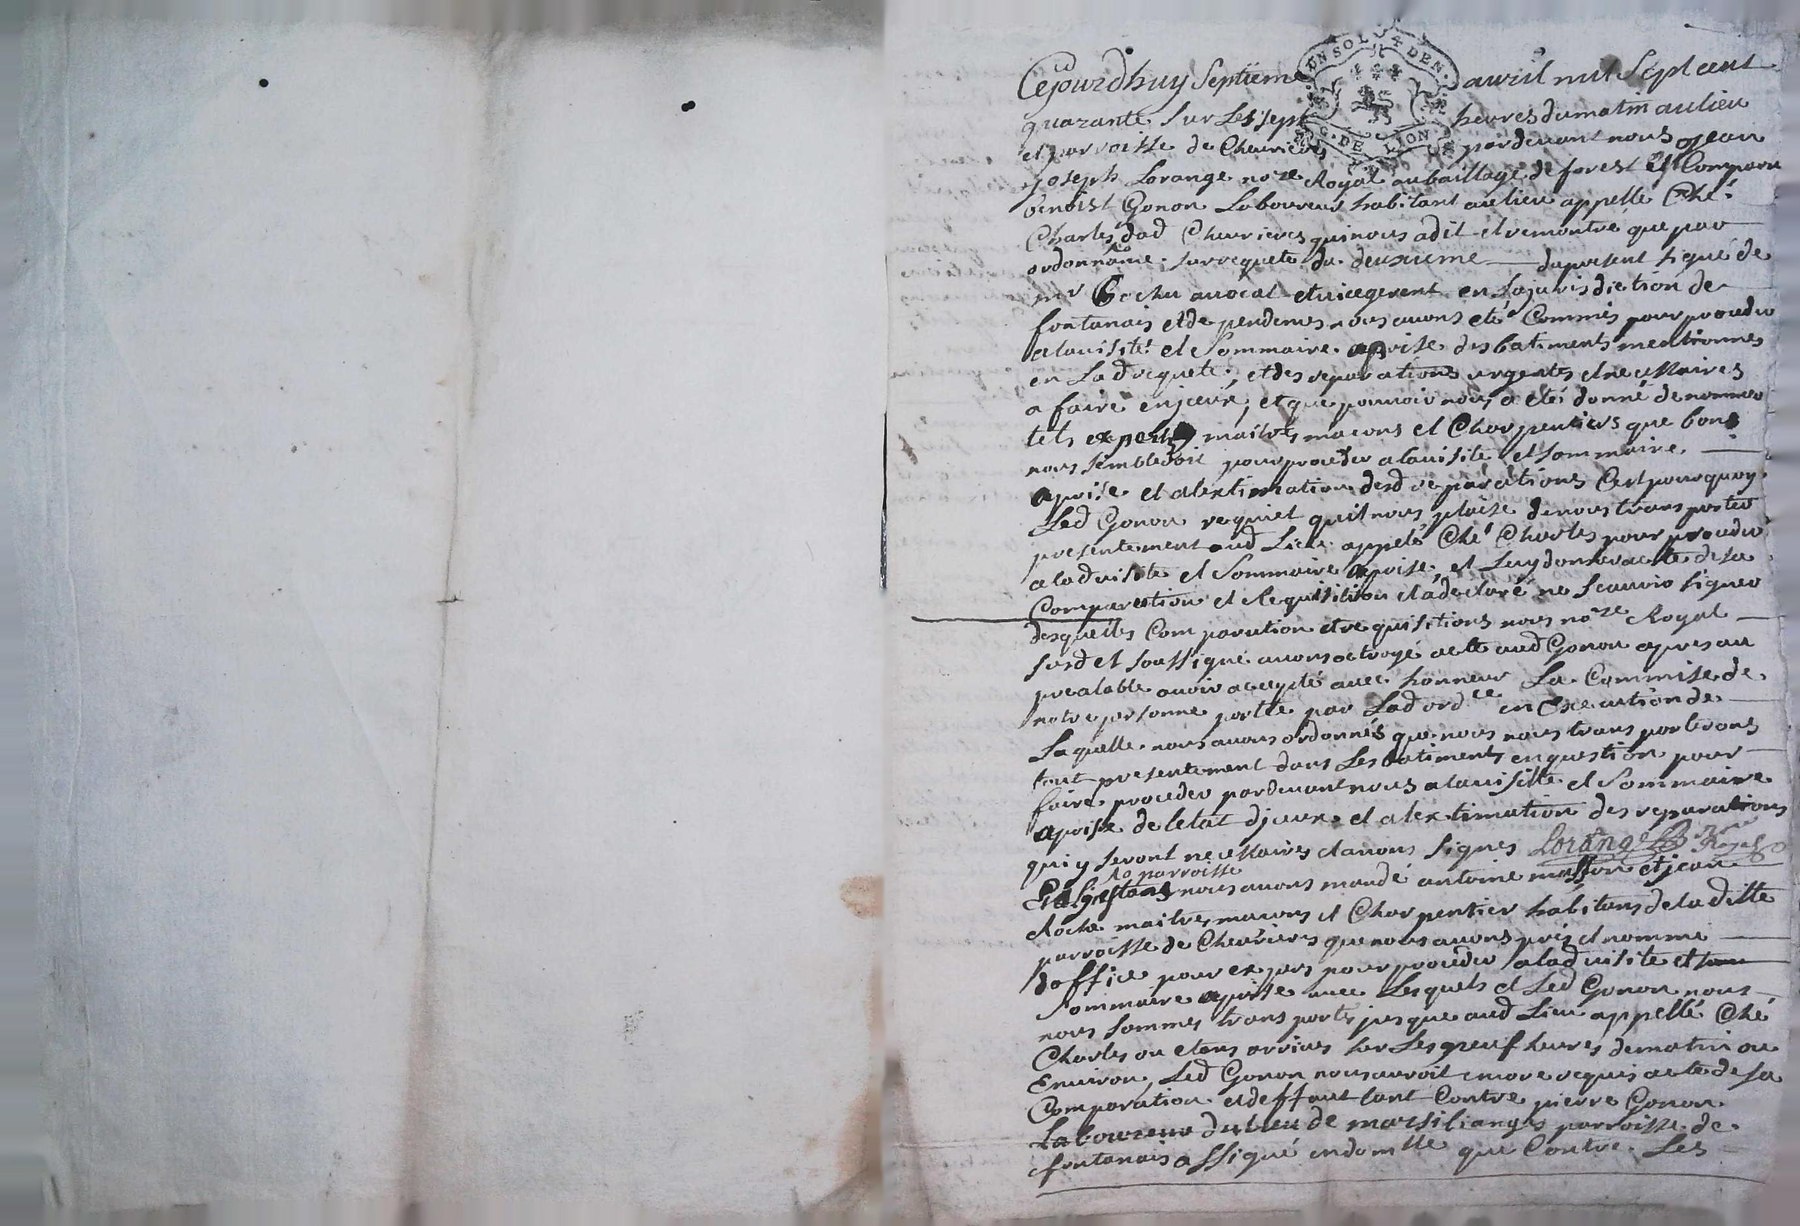 UN SOL 4 DEN.
G. DE LION
Cejourdhuy Septieme avril mil Sept cent
quarante Sur Les Sept heures du matin au lieu
et parroisse de Chevrieres pardevant nous Jean
Joseph Lorange nore Royal au bailliage de forest Est Comparu
benoist Gonon Laboureur habitant au lieu appellé Ché
Charles dad Chevrieres qui nous a dit et remontré que par
ordonnance sur requete du deuxieme du present signé de
mr avocat et vicegerent en la jurisdiction de
fontanais et dependences nous avons eté Commis pour proceder
a la visite et Sommaire aprise des batiments mentionnes
en Lad requete, et des reparations urgentes et necessaires
a faire en jceux, et que pouvoir nous a eté donné de nommer
tels experts maitres macons et Charpentiers que bons
nous sembleroit pour proceder a la visite et sommaire
aprise et a lextimation desd reparations Cest pourquoy
Led Gonon requiet quil nous plaise de nous transporter
presentement aud Lieu appelé Ché Charles pour proceder
a lad visite et Sommaire aprise, et Luy donner acte de sa
Comparution et Requisition et a declaré ne Scavoir signer
desquelles Comparution et requisitions nous nore Royal
susd et soussigné avons octroyé acte aud Gonon apres au
prealable avoir accepté avec honneur La Commise de
notre personne portée par Lad ordce en Execution de
Laquelle nous avons ordonnés que nous nous transporterons
tout presentement dans Les batiments en question pour
faire proceder pardevant nous a la visitte et Sommaire
aprise de letat djceux et a lextimation des reparations
qui y seront necessaires et avons signes Lorange nre Royal
la parroisse
nous avons mandé antoine masson et jean
Roche maitres macons et Charpentier habitans de la ditte
parroisse de Chevrieres que nous avons pris et nomme
doffice pour expers pour proceder a lad visite et
Sommaire aprise avec Lesquels et Led Gonon nous
nous sommes transportés jusque aud Lieu appellé Ché
Charles ou etens arrives sur Les neuf heures de matin ou
Environ, Led Gonon nous auroit encore requis acte de sa
Comparution et deffaut tant Contre pierre Gonon
Laboureur du lieu de marsilianges parroisse de
fontanais assigné en domlle que Contre Les